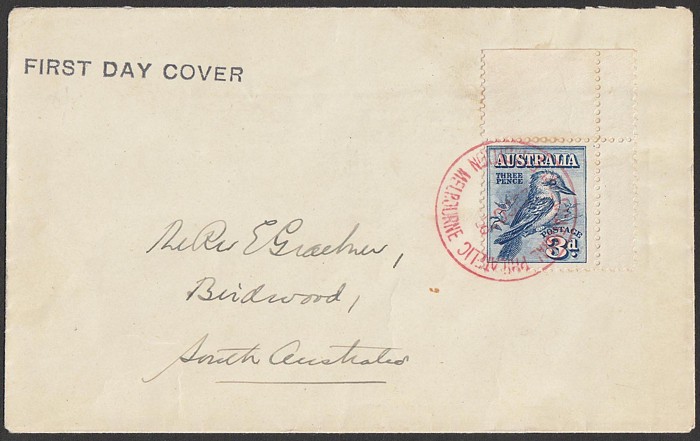 FIRST DAY COVER
AUSTRALIA
THREE
PENCE
POSTAGE
3d
MELBOURNE
PHILATELIC
The Rev E Graebner,
Birdwood,
South Australia